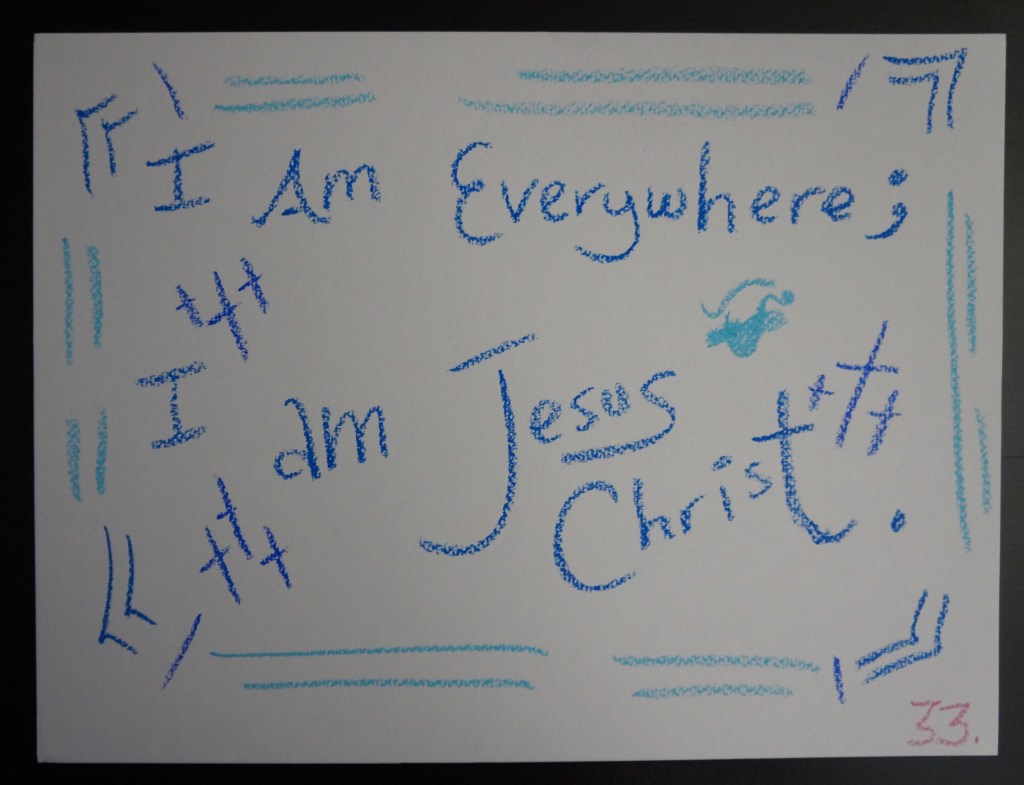 I Am Everywhere;
I am Jesus
Christ.
33.